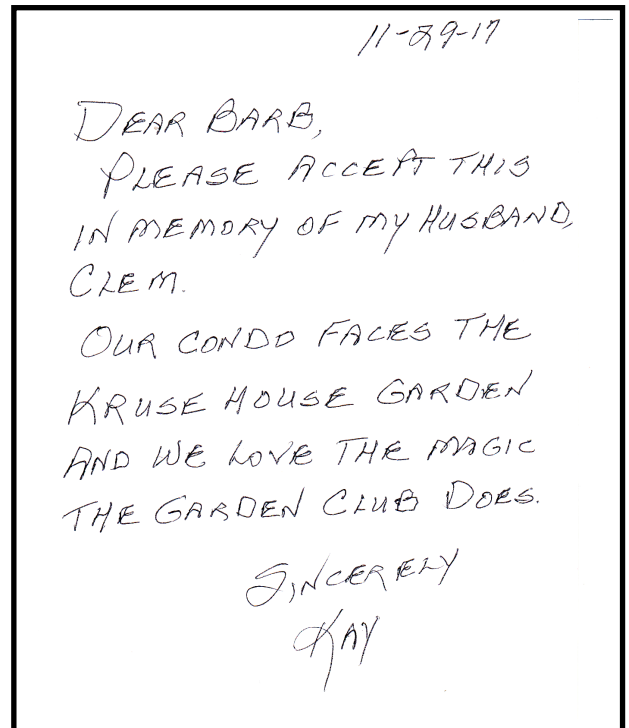 11-29-17
DEAR BARB,
PLEASE ACCEPT THIS
IN MEMORY OF MY HUSBAND,
CLEM.
OUR CONDO FACES THE
KRUSE HOUSE GARDEN
AND WE LOVE THE MAGIC
THE GARDEN CLUB DOES.
SINCERELY
KAY